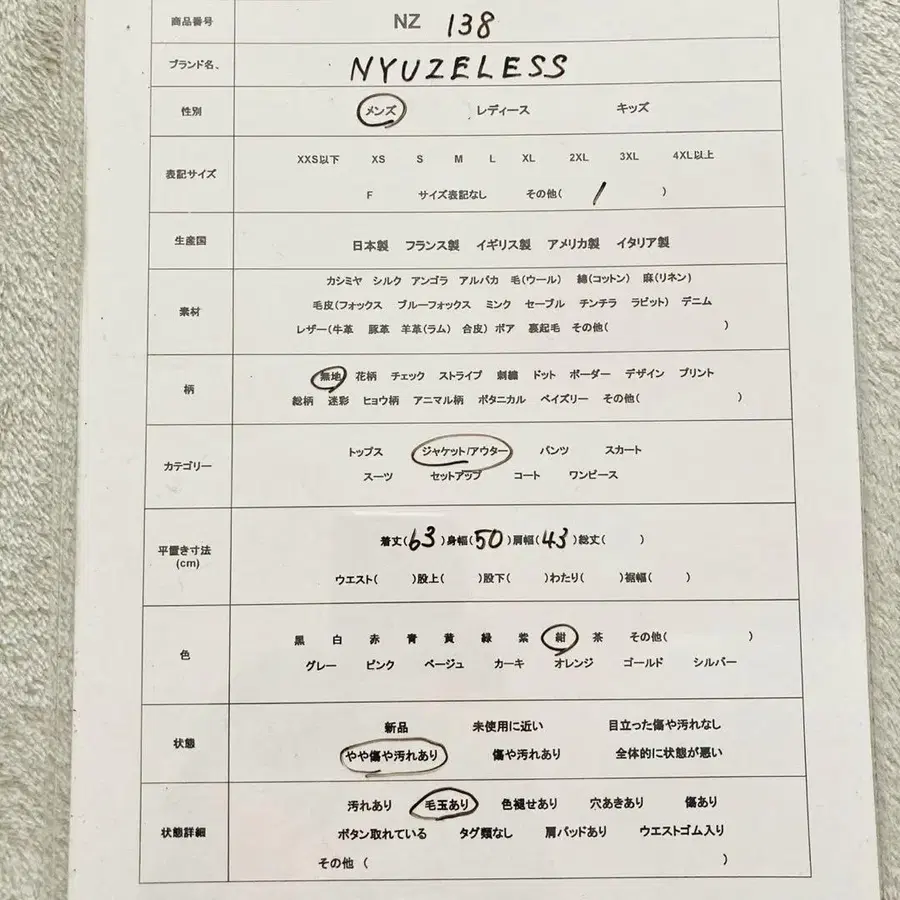 商品番号 NZ 138
ブランド名、 NYUZELESS
性別 メンズ レディース キッズ
表記サイズ
XXS以下 XS S M L XL 2XL 3XL 4XL以上
F サイズ表記なし その他( / )
生産国 日本製 フランス製 イギリス製 アメリカ製 イタリア製
素材
カシミヤ シルク アンゴラ アルパカ 毛(ウール) 綿(コットン) 麻(リネン)
毛皮(フォックス ブルーフォックス ミンク セーブル チンチラ ラビット) デニム
レザー(牛革 豚革 羊革(ラム) 合皮) ボア 裏起毛 その他( )
柄
無地 花柄 チェック ストライプ 刺繍 ドット ボーダー デザイン プリント
総柄 迷彩 ヒョウ柄 アニマル柄 ボタニカル ペイズリー その他( )
カテゴリー
トップス ジャケット/アウター パンツ スカート
スーツ セットアップ コート ワンピース
平置き寸法
(cm)
着丈(63)身幅(50)肩幅(43)総丈( )
ウエスト( )股上( )股下( )わたり( )裾幅( )
色
黒 白 赤 青 黄 緑 紫 紺 茶 その他( )
グレー ピンク ベージュ カーキ オレンジ ゴールド シルバー
状態
新品 未使用に近い 目立った傷や汚れなし
やや傷や汚れあり 傷や汚れあり 全体的に状態が悪い
状態詳細
汚れあり 毛玉あり 色褪せあり 穴あきあり 傷あり
ボタン取れている タグ類なし 肩パッドあり ウエストゴム入り
その他 ( )